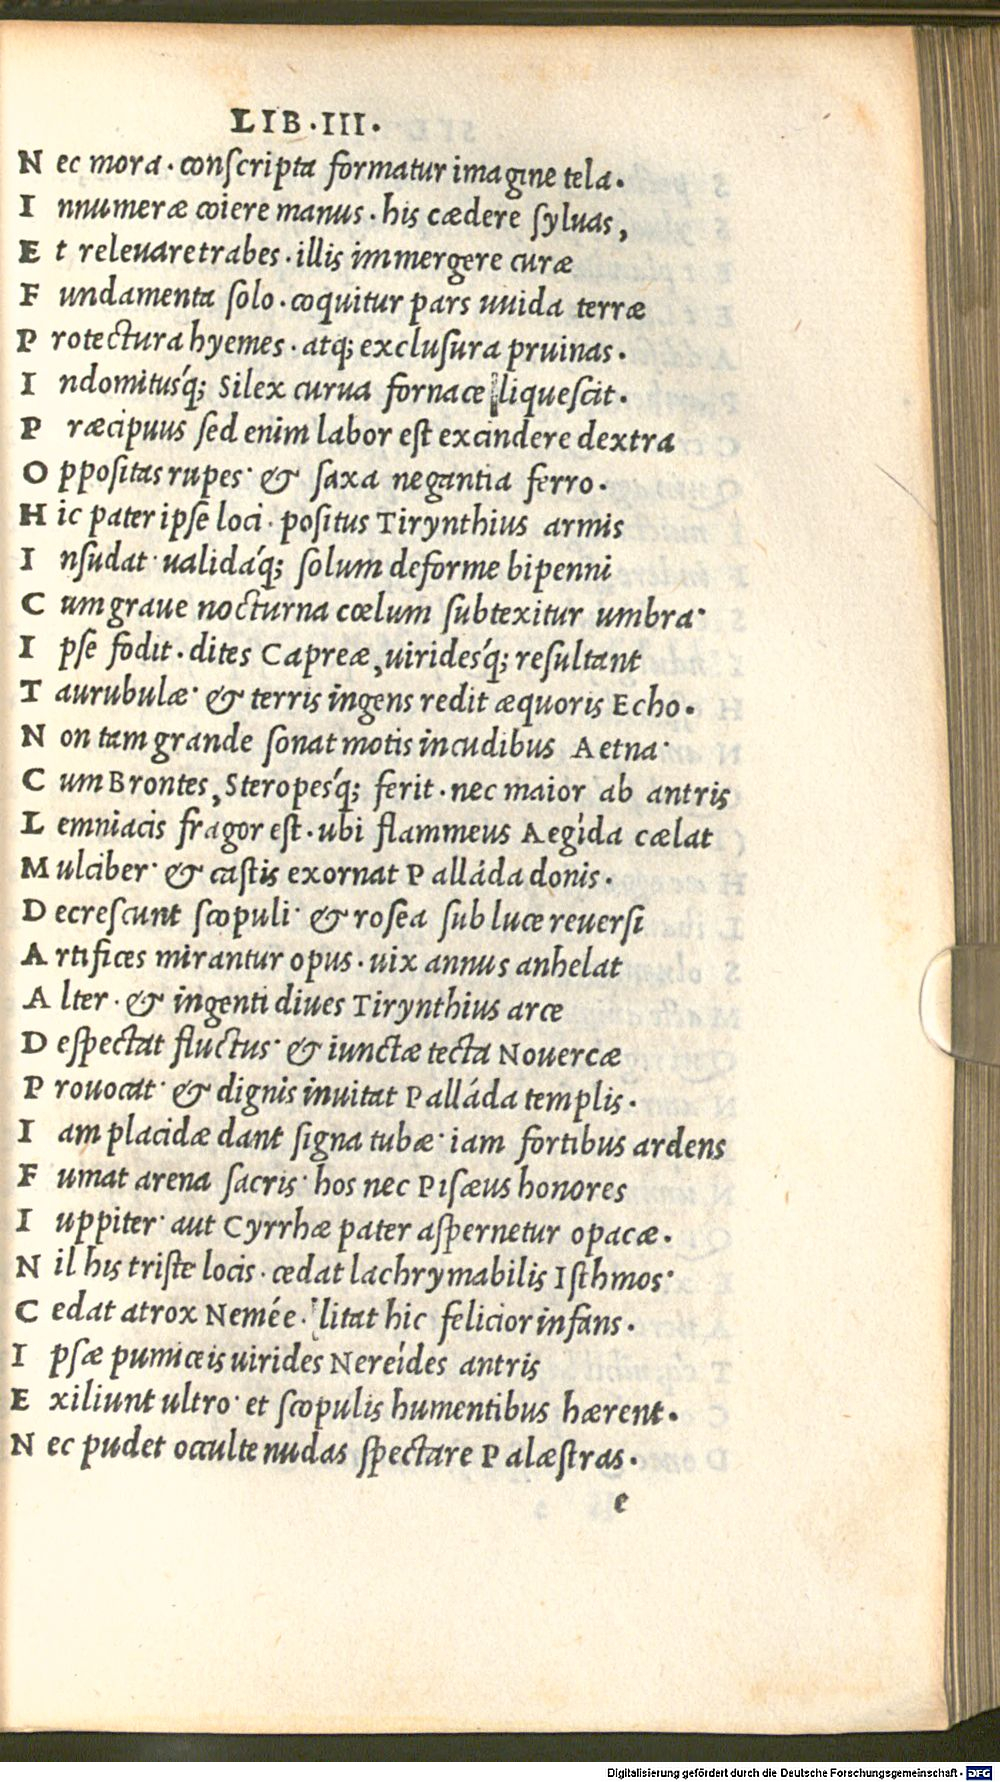 LIB.III.
Nec mora. conſcripta formatur imagine tela.
Innumeræ coiere manus. his cædere ſyluas,
Et releuare trabes. illis immergere curæ
Fundamenta ſolo. coquitur pars uuida terræ
Protectura hyemes. atq; excluſura pruinas.
Indomituśq; Silex curua fornace liqueſcit.
Præcipuus ſed enim labor eſt excindere dextra
Oppoſitas rupes· & ſaxa negantia ferro.
Hic pater ipſe loci. poſitus Tirynthius armis
Inſudat· ualidáq; ſolum deforme bipenni
Cum graue nocturna cœlum ſubtexitur umbra·
Ipſe fodit. dites Capreæ, uirideśq; reſultant
Taurubulæ· & terris ingens redit æquoris Echo.
Non tam grande ſonat motis incudibus Aetna·
Cum Brontes, Steropeśq; ferit. nec maior ab antris
Lemniacis fragor eſt. ubi flammeus Aegída cælat
Mulciber· & caſtis exornat Palláda donis.
Decreſcunt ſcopuli· & roſea ſub luce reuerſi
Artifices mirantur opus. uix annus anhelat
Alter. & ingenti diues Tirynthius arce
Deſpectat fluctus· & iunctæ tecta Nouercæ
Prouocat· & dignis inuitat Palláda templis.
Iam placidæ dant ſigna tubæ· iam fortibus ardens
Fumat arena ſacris· hos nec Piſæus honores
Iuppiter· aut Cyrrhæ pater aſpernetur opacæ.
Nil his triſte locis. cedat lachrymabilis Iſthmos·
Cedat atrox Nemée. litat hic felicior infans.
Ipſæ pumiceis uirides Nereídes antris
Exiliunt ultro· et ſcopulis humentibus hærent.
Nec pudet occulte nudas ſpectare Palæſtras.
e
Digitalisierung gefördert durch die Deutsche Forschungsgemeinschaft - DFG